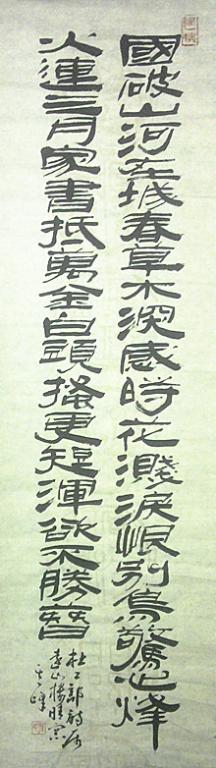 國破山河在城春草木深感時花濺淚恨別鳥驚心烽
火連三月家書抵萬金白頭搔更短渾欲不勝簪
杜工部詩